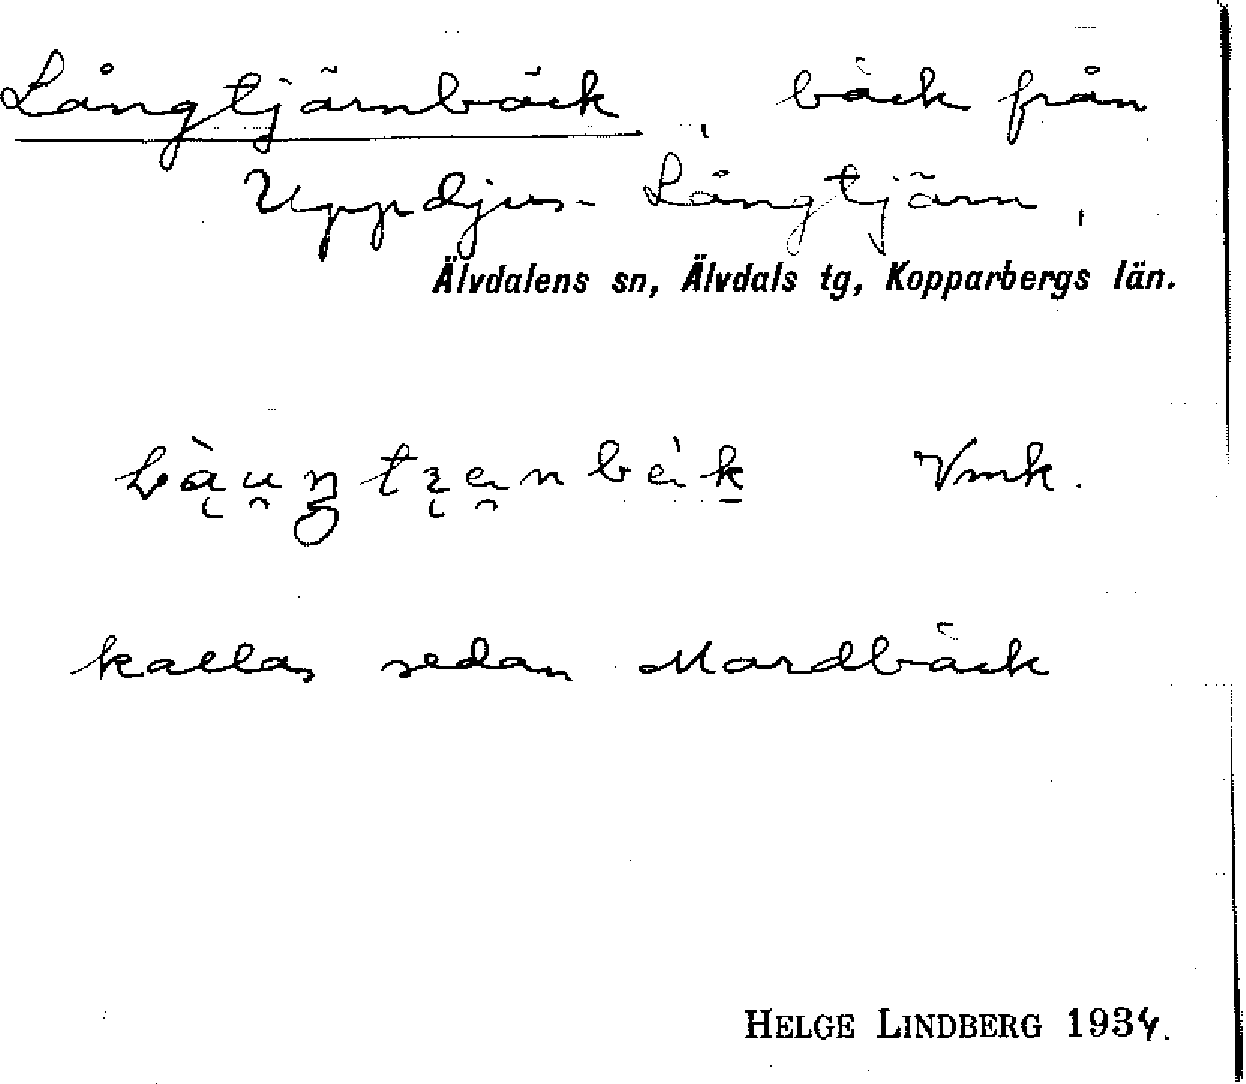 Långtjärnbäck, bäck från
Uppdjus-Långtjärn,
Älvdalens sn, Älvdals tg, Kopparbergs län.
Vmk.
kallas sedan Mardbäck
HELGE LINDBERG 1934.